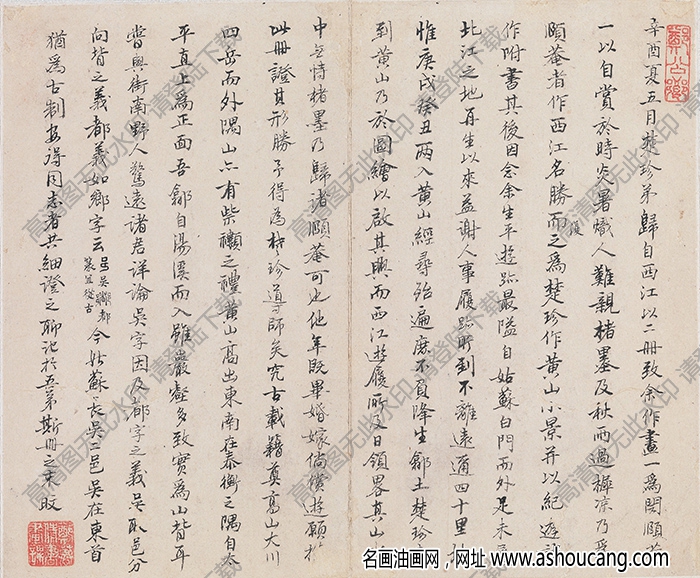 辛酉夏五月楚珍弟歸自西江以二冊致余作畫一為閔頤
一以自賞於時炎暑熾人難親楮墨及秋而過梅凉乃
頤菴者作西江名勝而復之為楚珍作黃山小景并以紀遊
作附書其後因念余生平遊跡最隘自姑蘇白門而外足未
北江之地再生以來益謝人事履跡所到不離遠遁四十里
惟庚戌癸丑兩入黃山經尋殆遍庶不負降生鄉土楚珍
到黃山乃於圖繪以啟其興而西江遊屐所及日領畧其山
中無恃楮墨乃歸諸頤菴可也他年既畢婚嫁倘償遊願於
此冊證其形勝予得為楚珍導師矣究古載籍英高山大川
四岳而外隅山亦有柴禷之禮黃山高出東南在泰衡之隅自
平直上為正面吾鄉自湯溪而入雖巖壑多致實為山背耳
嘗與街南野人鷟遠諸君詳論吳字因及都字之義吳取邑分
向背之義都義如鄉字云
今姑蘇長吳二邑吳在東首
猶為古制安得同志者共細證之聊記於吾弟斯冊之末
名画油画网，网址 www.ashoucang.com
高清图无此水印 请登陆下载